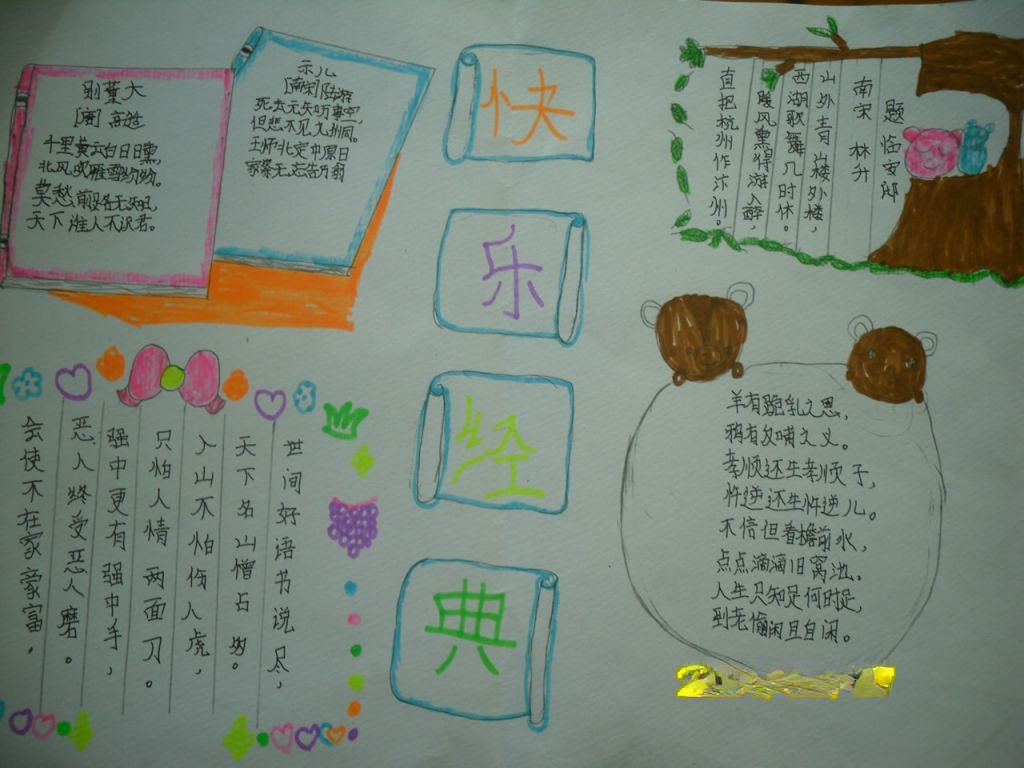 别董大
[唐] 高适
千里黄云白日曛,
北风吹雁雪纷纷。
莫愁前路无知己,
天下谁人不识君。
示儿
[南宋] 陆游
死去元知万事空,
但悲不见九州同。
王师北定中原日
家祭无忘告乃翁
快
乐
经
典
题临安邸
南宋 林升
山外青山楼外楼,
西湖歌舞几时休。
暖风熏得游人醉,
直把杭州作汴州。
世间好语书说尽,
天下名山僧占多。
入山不怕伤人虎,
只怕人情两面刀。
强中更有强中手,
恶人终受恶人磨。
会使不在家豪富,
羊有跪乳之恩,
鸦有反哺之义。
孝顺还生孝顺子,
忤逆还生忤逆儿。
不信但看檐前水,
点点滴滴旧窝池。
人生只知足何时足,
到老偷闲且自闲。